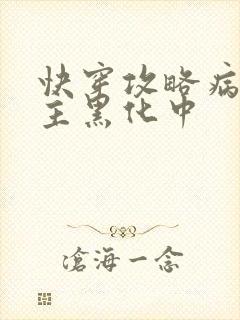 快穿攻略病
主黑化中
滄海一念